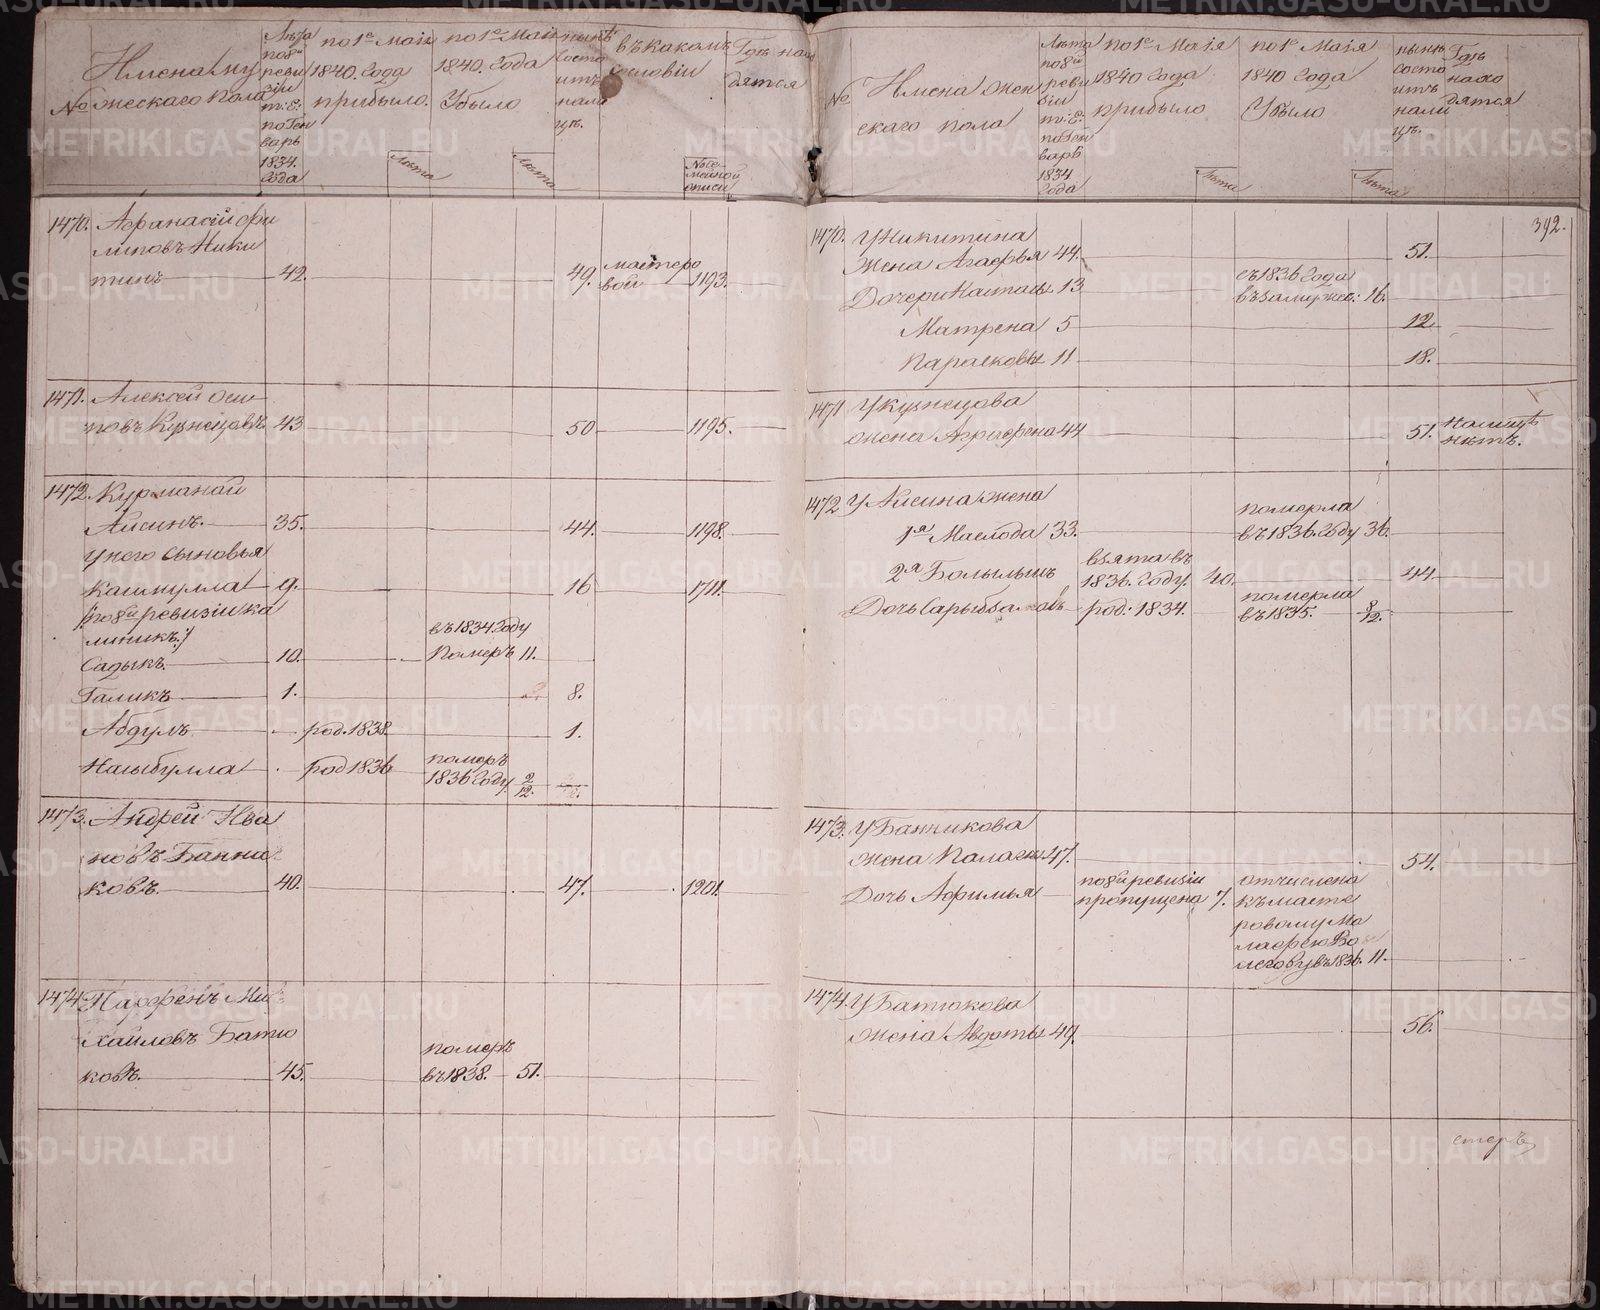 №
Имена му
жескаго пола
Лѣта
по 8й
реви
зіи
т: е:
по Ген
варь
1834.
года
по 1е Маія
1840. года
прибыло.
Лѣта
по 1е Маія
1840. года
Убыло
Лѣта
нынѣ
состо
итъ
нали
цѣ.
въ какомъ
сословіи
№ се-
мейной
описи
Гдѣ нахо
дятся
1470. Афанасій Фи
липовъ Ники
тинъ 42. 49. мастеро
вой 1193.
1471. Алексей Оси
повъ Кузнецовъ 43 50 1195.
1472. Курманай
Аисинъ. 35. 44. 1198.
у него сыновья
9. 16 1711.
(по 8й ревизіи ка
липикъ:)
въ 1834 году
Садыкъ. 10. Померъ 11.
Галикъ 1. 8.
Абдулъ род. 1838. 1.
Нагыбулла род 1836 померъ
1836 году 2/12.
1473. Андрей Ива
новъ Банни
ковъ 40. 47. 1201.
1474 Парфенъ Ми
хайловъ Батю
ковъ. 45. померъ
въ 1838. 51.
№
Имена жен
скаго пола
Лѣта
по 8й
реви
зіи
т: е:
по Ген
варь
1834
года
по 1е Маія
1840 года
прибыло
Лѣта
по 1е Маія
1840 года
Убыло
Лѣта
нынѣ
состо
итъ
нали
цѣ.
Гдѣ
нахо
дятся
392.
1470. У Никитина
жена Агафья 44. 51.
съ 1836 года
Дочери Настасья 13 въ замужес. 16.
Матрена 5 12.
Парасковья 11 18.
1471 У Кузнецова
жена Аграфена 44 51. Налицѣ
нѣтъ.
1472 У Аисина жена
1я 33. померла
въ 1836. году 36.
2я взята въ
1836. году. 40. 44.
Дочь род. 1834. померла
въ 1835. 8/12.
1473. У Банникова
жена Палагея 47. 54.
Дочь Афимья по 8й ревизіи
пропущена 7. отчислена
къ масте
ровому Ма
лафею Во
легову въ 1836. 11.
1474. У Батюкова
жена Авдотья 49. 56.